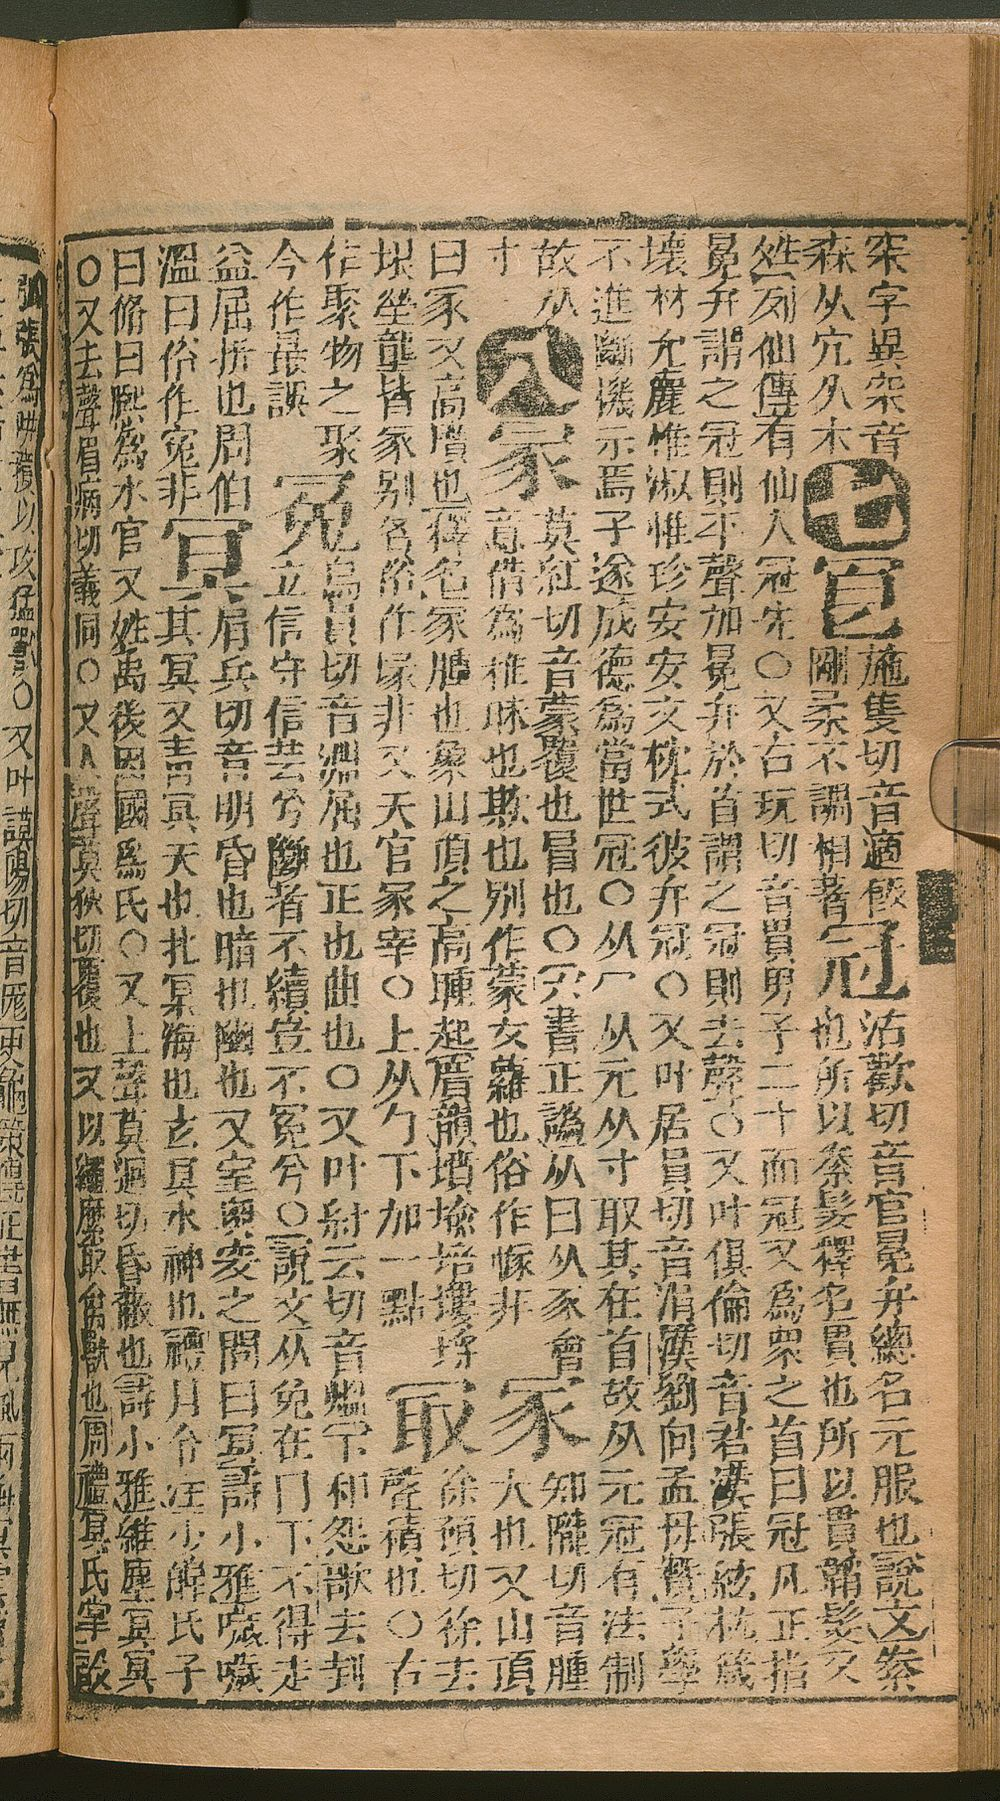 穼字異穼音
森从穴从木
七
㝉施隻切音適飯
剛柔不調相著
冠沽歡切音官冕弁總名元服也說文豢
也所以豢髮釋名貫也所以貫韜髮又
姓列仙傳有仙人冠先○又古玩切音貫男子二十而冠又爲衆之首曰冠凡正指
冕弁謂之冠則平聲加冕弁於首謂之冠則去聲○又叶俱倫切音君漢張絃枕箴
壤材允麗惟淑惟珍安安文枕式彼弁冠○又叶居員切音涓漢劉向孟母贊子學
不進斷機示焉子遂成德爲當世冠○从冖从元从寸取其在首故从元冠有法制
故从
寸
八
冡莫紅切音蒙覆也冒也○六書正譌从冃从豕會
意借爲推昧也欺也别作蒙女蘿也俗作幪非
冢知隴切音腫
大也又山頂
曰冢又高墳也釋名冢腫也象山頂之高腫起厝韻墳堬培塿埒
埌塋壟皆冢别名俗作塚非又天官冢宰○上从勹下加一點
冣徐預切徐去
聲積也○古
作聚物之聚
今作最誤
冤烏員切音淵屈也正也曲也○又叶紆云切音熅卞和怨歌去封
立信守信芸兮斷者不續豈不冤兮○說文从兔在冂下不得走
益屈折也周伯
溫曰俗作寃非
冥眉兵切音明昏也暗也幽也又室突之間曰冥詩小雅噦噦
其冥又靑冥天也北冥海也玄冥水神也禮月令注少皥氏子
曰脩曰熙爲水官又姓禹後因國爲氏○又上聲莫迥切昏蔽也詩小雅維塵冥冥
○又去聲眉病切義同○又入聲莫狄切覆也又以繩縻取禽獸也周禮冥氏掌設
弧張爲阱擭以攻猛獸○又叶謨陽切音厖史龜策傳